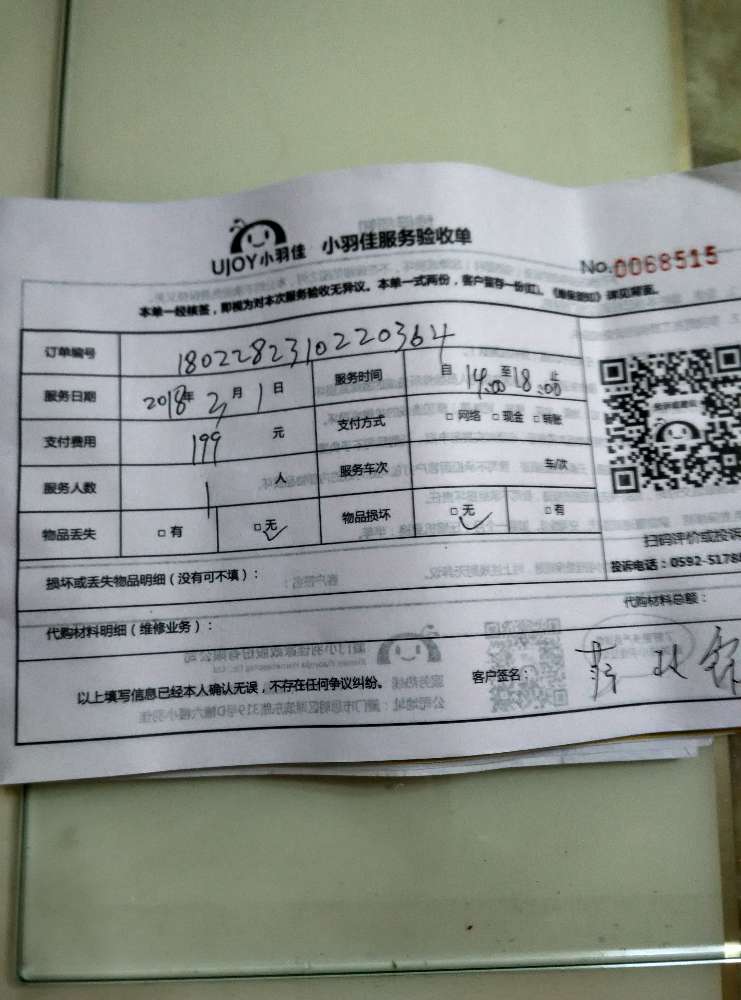 UJOY小羽佳 小羽佳服务验收单
No.0068515
本单一经核签，即视为对本次服务验收无异议。本单一式两份，客户留存一份(红)，《服务须知》详见背面。
订单编号 1802282310220364
服务日期 2018年3月1日 服务时间 自14:00至18:00止
支付费用 199元 支付方式 □网络 □现金 □转账
服务人数 1人 服务车次 车/次
物品丢失 □有 □无✓ 物品损坏 □无✓ □有
扫码评价或投诉
投诉电话：0592-5178
损坏或丢失物品明细（没有可不填）：
代购材料明细（维修业务）： 代购材料总额：
以上填写信息已经本人确认无误，不存在任何争议纠纷。 客户签名：